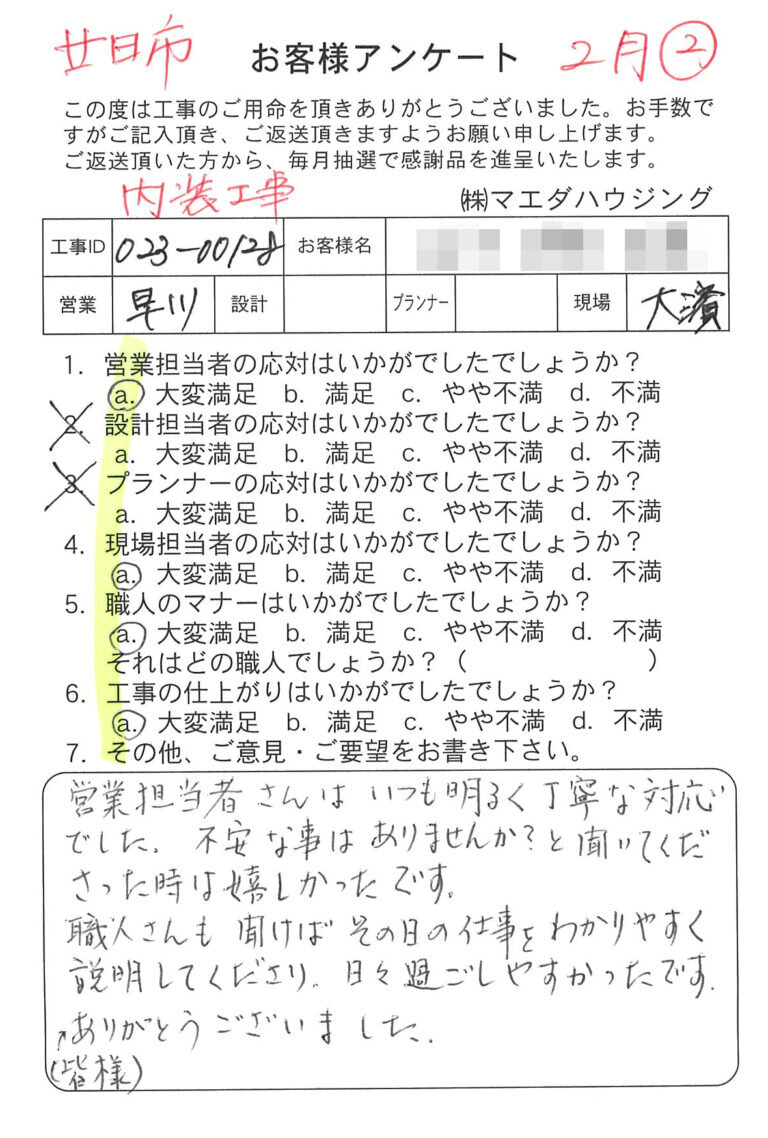 廿日市 お客様アンケート 2月②
この度は工事のご用命を頂きありがとうございました。お手数で
すがご記入頂き、ご返送頂きますようお願い申し上げます。
ご返送頂いた方から、毎月抽選で感謝品を進呈いたします。
内装工事 ㈱マエダハウジング
工事ID 023-00128 お客様名
営業 早川 設計 プランナー 現場 大濱
1. 営業担当者の応対はいかがでしたでしょうか？
a. 大変満足 b. 満足 c. やや不満 d. 不満
2. 設計担当者の応対はいかがでしたでしょうか？
a. 大変満足 b. 満足 c. やや不満 d. 不満
3. プランナーの応対はいかがでしたでしょうか？
a. 大変満足 b. 満足 c. やや不満 d. 不満
4. 現場担当者の応対はいかがでしたでしょうか？
a. 大変満足 b. 満足 c. やや不満 d. 不満
5. 職人のマナーはいかがでしたでしょうか？
a. 大変満足 b. 満足 c. やや不満 d. 不満
それはどの職人でしょうか？（ ）
6. 工事の仕上がりはいかがでしたでしょうか？
a. 大変満足 b. 満足 c. やや不満 d. 不満
7. その他、ご意見・ご要望をお書き下さい。
営業担当者さんは いつも明るく丁寧な対応
でした。不安な事は ありませんか？と聞いてくだ
さった時は嬉しかったです。
職人さんも 聞けば その日の仕事を わかりやすく
説明してくださり、日々過ごしやすかったです。
↗ありがとうございました。
(皆様)